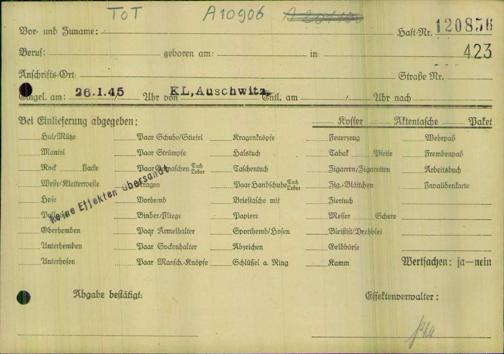 TOT A10906
Vor- und Zuname: Haft-Nr. 120836
Beruf: geboren am: in: 423
Anschrifts-Ort: Straße Nr.
Eingel. am 26.1.45 Uhr von KL, Auschwitz Entl. am / Uhr nach
Bei Einlieferung abgegeben: Koffer Aktentasche Paket
Hut/Mütze Paar Schuhe/Stiefel Kragenknöpfe Feuerzeug Wehrpaß
Mantel Paar Strümpfe Halstuch Tabak Pfeife Fremdenpaß
Rock Jacke Paar Gamaschen Tuch Leder Taschentuch Zigarren/Zigaretten Arbeitsbuch
Weste/Kletterweste Kragen Paar Handschuhe Tuch Leder Zig.-Blättchen Invalidenkarte
Hose Vorhemd Brieftasche mit Ziertuch
Binder/Fliege Papiere Messer Schere
Oberhemden Paar Ärmelhalter Sporthemd/Hosen Bleistift/Drehblei
Unterhemden Paar Sockenhalter Abzeichen Geldbörse
Unterhosen Paar Mansch.-Knöpfe Schlüssel a. Ring Kamm Wertsachen: ja—nein
Keine Effekten übersandt
Abgabe bestätigt: Effektenverwalter: